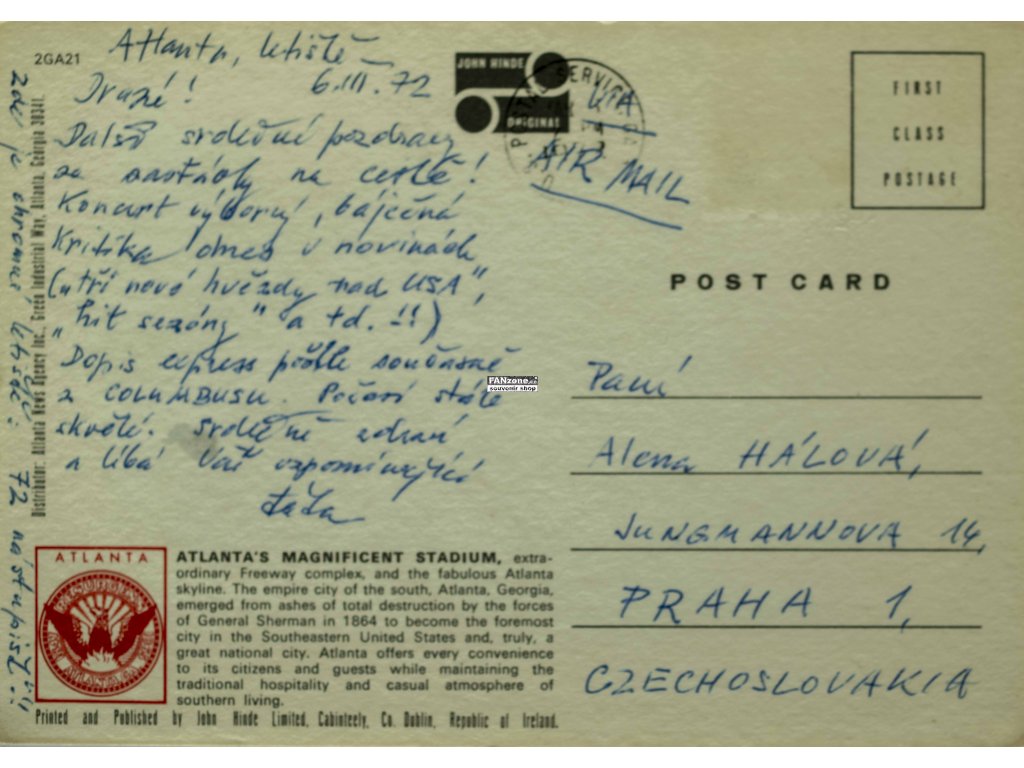 2GA21
Atlanta, letiště
6.III.72
Drazé!
Další srdečné pozdravy
za zastávky na cestě!
Koncert výborný, báječná
Kritika dnes v novinách
("tři nové hvězdy nad USA",
"hit sezóny" a td.!!)
Dopis express pošlu současně
z COLUMBUSU. Počasí stále
skvělé. Srdečně zdraví
a líbá Váš vzpomínající
táta
zde je ohromné letiště: 72 nástupišť!!
Distributor: Atlanta News Agency Inc., Green Industrial Way, Atlanta, Georgia 30341.
JOHN HINDE
ORIGINAL
POSTAL SERVICE
AIR MAIL
FIRST
CLASS
POSTAGE
POST CARD
FANzone.cz
souvenir shop
Paní
Alena HÁLOVÁ,
JUNGMANNOVA 14,
PRAHA 1,
CZECHOSLOVAKIA
ATLANTA
RESURGENS
ATLANTA, GA.
ATLANTA'S MAGNIFICENT STADIUM, extra-
ordinary Freeway complex, and the fabulous Atlanta
skyline. The empire city of the south, Atlanta, Georgia,
emerged from ashes of total destruction by the forces
of General Sherman in 1864 to become the foremost
city in the Southeastern United States and, truly, a
great national city. Atlanta offers every convenience
to its citizens and guests while maintaining the
traditional hospitality and casual atmosphere of
southern living.
Printed and Published by John Hinde Limited, Cabinteely, Co. Dublin, Republic of Ireland.